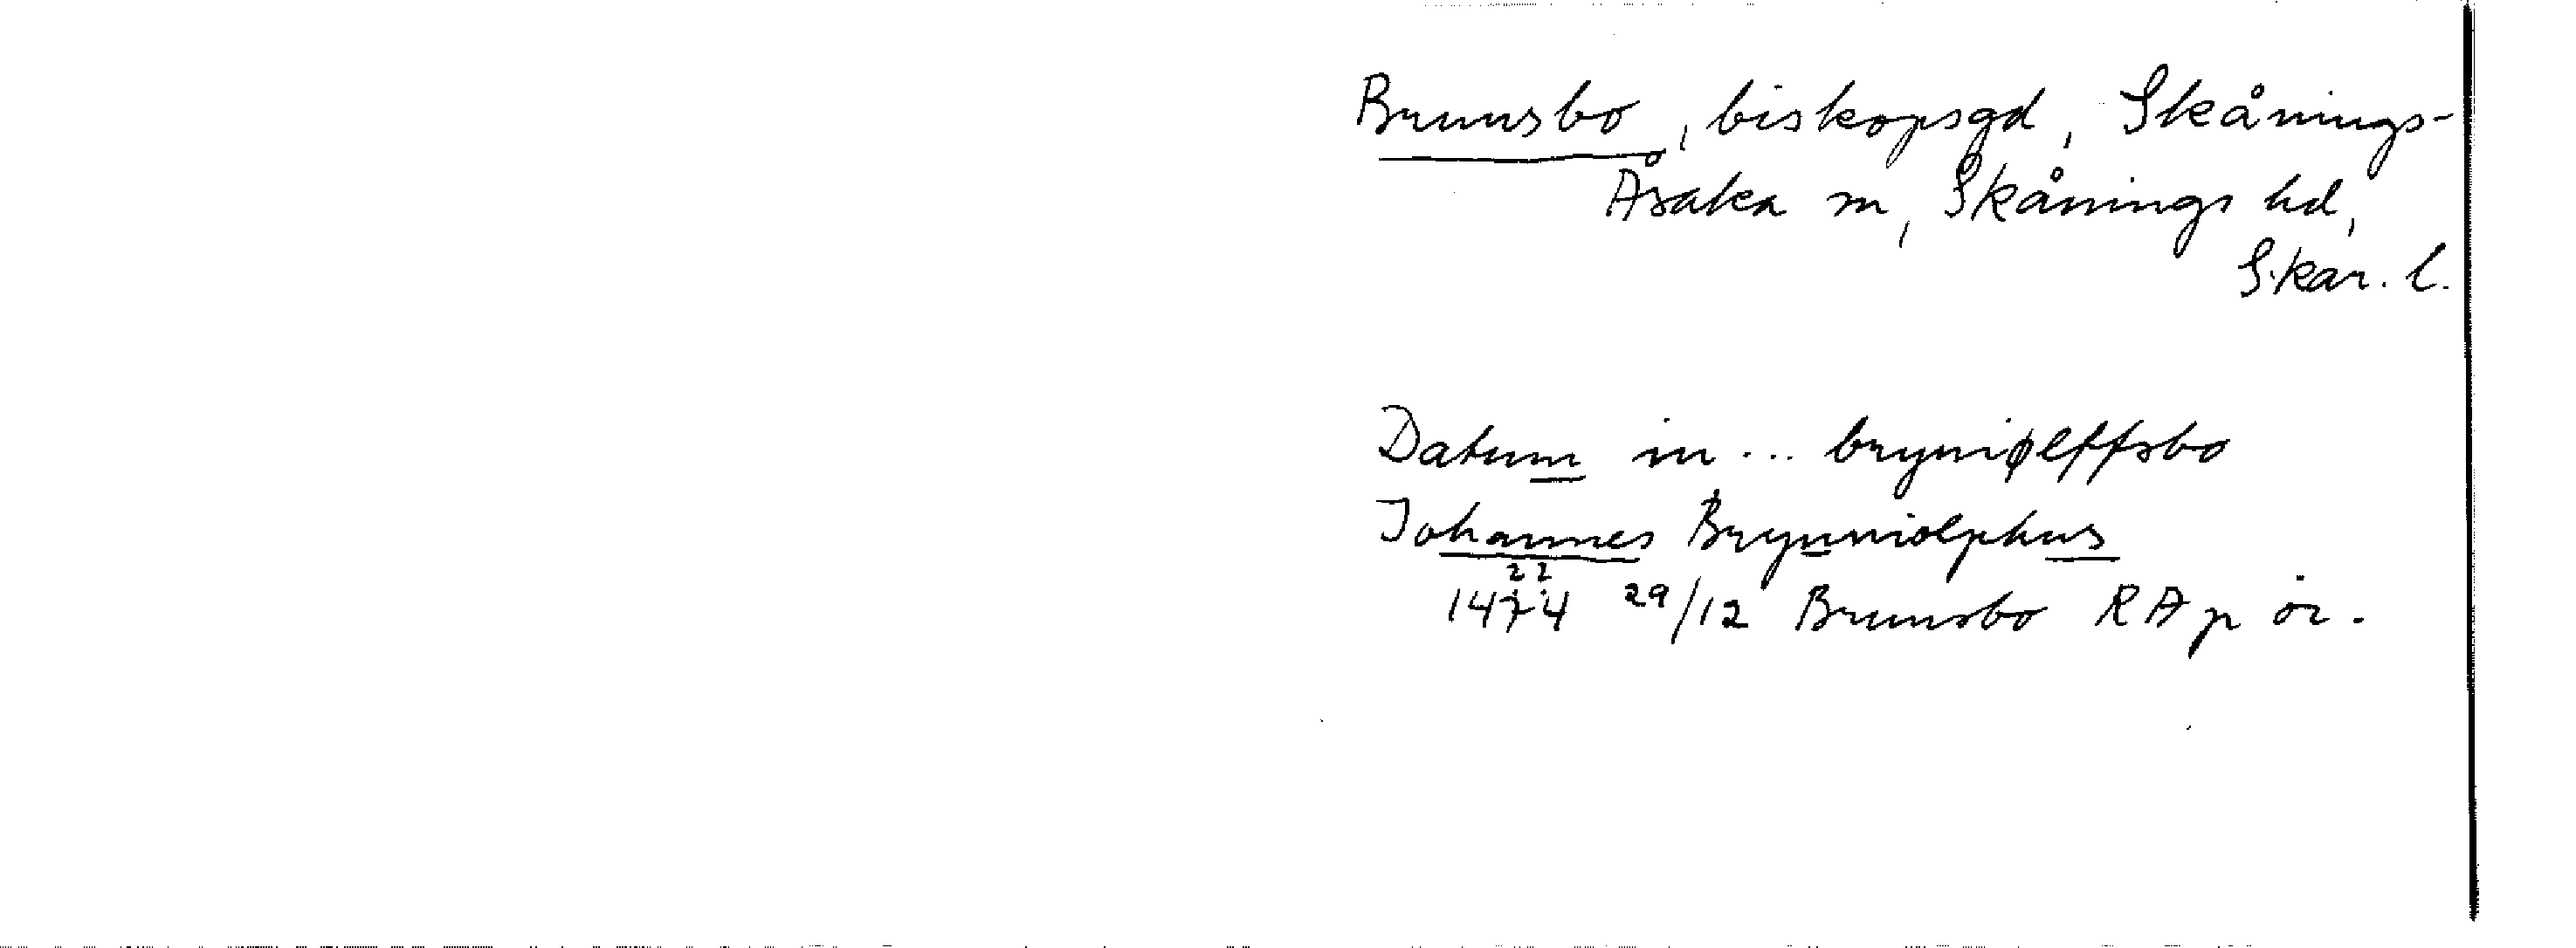 Brunsbo, biskopsgd, Skånings-
Åsaka sn, Skånings hd,
Skar. l.
Datum in ... bryniølffsbo
Johannes Brynniolphus
22
1474 29/12 Brunsbo RAp or.